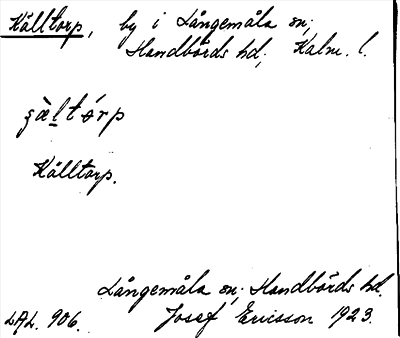 Källtorp, by i Långemåla sn;
Handbörds hd, Kalm. l.
Källtorp.
Långemåla sn; Handbörds hd.
LAL. 906. Josef Ericsson 1923.